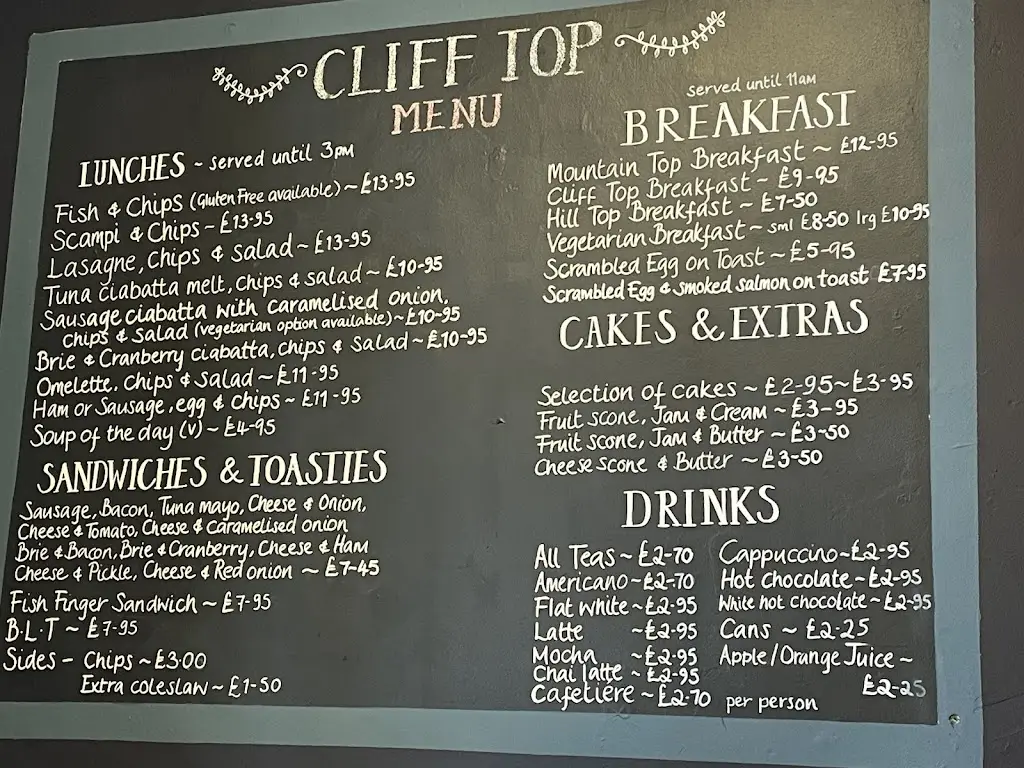 CLIFF TOP
MENU
LUNCHES ~ served until 3pm
Fish & Chips (Gluten Free available) ~ £13-95
Scampi & Chips ~ £13-95
Lasagne, chips & salad ~ £13-95
Tuna ciabatta melt, chips & salad ~ £10-95
Sausage ciabatta with caramelised onion,
chips & Salad (vegetarian option available) ~ £10-95
Brie & Cranberry ciabatta, chips & Salad ~ £10-95
Omelette, chips & salad ~ £11-95
Ham or Sausage, egg & chips ~ £11-95
Soup of the day (v) ~ £4-95
SANDWICHES & TOASTIES
Sausage, Bacon, Tuna mayo, Cheese & Onion,
Cheese & Tomato, Cheese & caramelised onion
Brie & Bacon, Brie & Cranberry, Cheese & Ham
Cheese & Pickle, Cheese & Red onion ~ £7-45
Fish Finger Sandwich ~ £7-95
B.L.T ~ £7-95
Sides - Chips ~ £3.00
Extra coleslaw ~ £1-50
served until 11am
BREAKFAST
Mountain Top Breakfast ~ £12-95
Cliff Top Breakfast ~ £9-95
Hill Top Breakfast ~ £7-50
Vegetarian Breakfast ~ sml £8-50 lrg £10-95
Scrambled Egg on Toast ~ £5-95
Scrambled Egg & smoked salmon on toast £7-95
CAKES & EXTRAS
Selection of cakes ~ £2-95 ~ £3-95
Fruit scone, Jam & Cream ~ £3-95
Fruit scone, Jam & Butter ~ £3-50
Cheese scone & Butter ~ £3-50
DRINKS
All Teas ~ £2-70
Americano ~ £2-70
Flat white ~ £2.95
Latte ~ £2.95
Mocha ~ £2.95
Chai latte ~ £2.95
Cafetière ~ £2-70 per person
Cappuccino ~ £2-95
Hot chocolate ~ £2-95
White hot chocolate ~ £2-95
Cans ~ £2-25
Apple/Orange Juice ~
£2-25